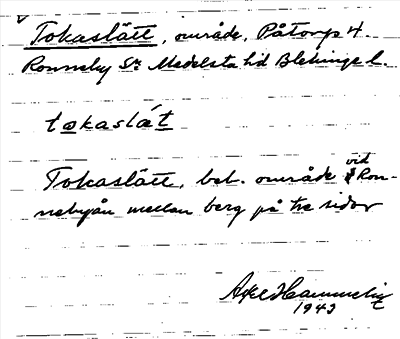 Tokaslätt, område, Påtorp 4.
Ronneby Sn Medelsta hd Blekinge l.
tokaslǽt
Tokaslätt, bet. område vid Ron-
nebyån mellan berg på tre sidor
Axel Hammelin
1943